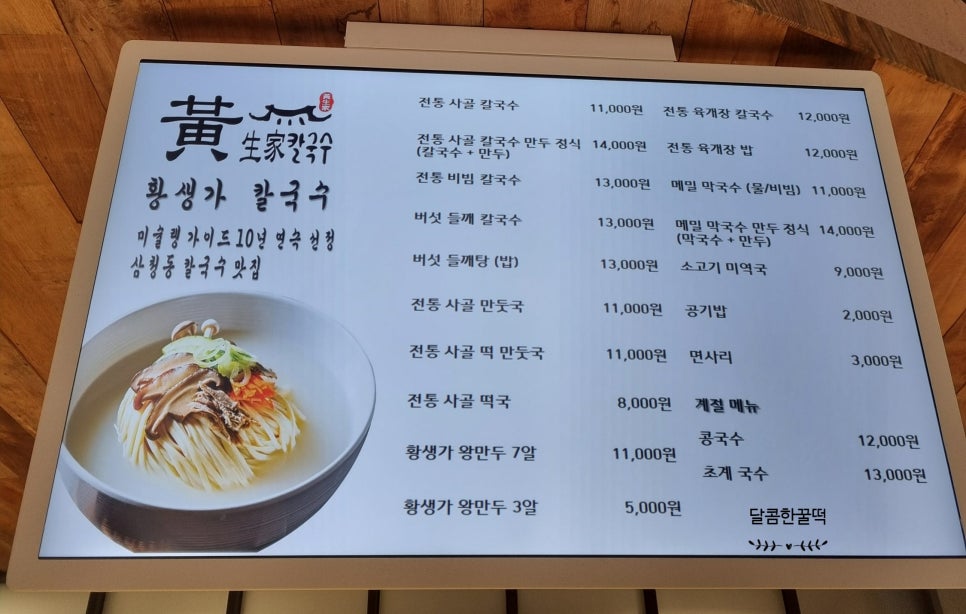 黃
黃生家
生家칼국수
황생가 칼국수
미슐랭가이드10년 연속 선정
삼청동 칼국수 맛집
전통 사골 칼국수 11,000원
전통 사골 칼국수 만두 정식 14,000원
(칼국수 + 만두)
전통 비빔 칼국수 13,000원
버섯 들깨 칼국수 13,000원
버섯 들깨탕 (밥) 13,000원
전통 사골 만둣국 11,000원
전통 사골 떡 만둣국 11,000원
전통 사골 떡국 8,000원
황생가 왕만두 7알 11,000원
황생가 왕만두 3알 5,000원
전통 육개장 칼국수 12,000원
전통 육개장 밥 12,000원
메밀 막국수 (물/비빔) 11,000원
메밀 막국수 만두 정식 14,000원
(막국수 + 만두)
소고기 미역국 9,000원
공기밥 2,000원
면사리 3,000원
계절 메뉴
콩국수 12,000원
초계 국수 13,000원
달콤한꿀떡